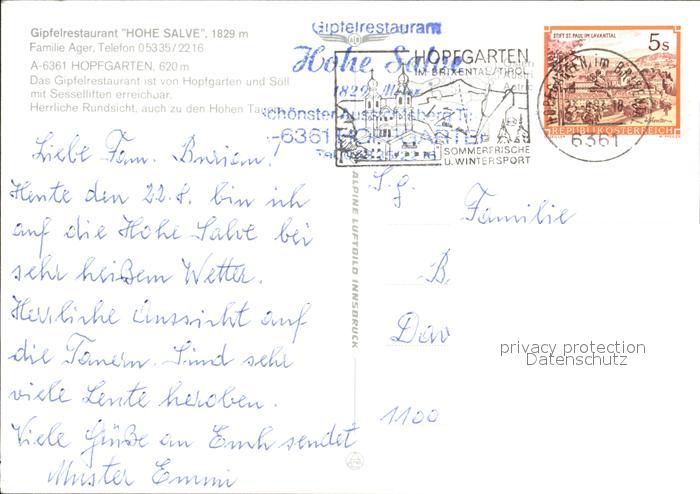 Gipfelrestaurant "HOHE SALVE", 1829 m
Familie Ager, Telefon 05335/2216
A-6361 HOPFGARTEN, 620 m
Das Gipfelrestaurant ist von Hopfgarten und Söll
mit Sesselliften erreichbar.
Herrliche Rundsicht, auch zu den Hohen Tauern
Gipfelrestaurant
Hohe Salve
1829 Meter
schönster Aussichtsberg Ti
-6361 HOPFGARTEN
HOPFGARTEN
IM BRIXENTAL/TIROL
SOMMERFRISCHE
U. WINTERSPORT
STIFT ST. PAUL IM LAVANTTAL
5 S
REPUBLIK ÖSTERREICH
HOPFGARTEN IM BRIXENTAL
6361
Liebe Fam. Burian!
Heute den 22.8. bin ich
auf die Hohe Salve bei
sehr heißem Wetter.
Herrliche Aussicht auf
die Tauern. Sind sehr
viele Leute heroben.
Viele Grüße an Euch sendet
Mutter Emmi
ALPINE LUFTBILD INNSBRUCK
S.g.
Familie
B.
Dav
1100
privacy protection
Datenschutz